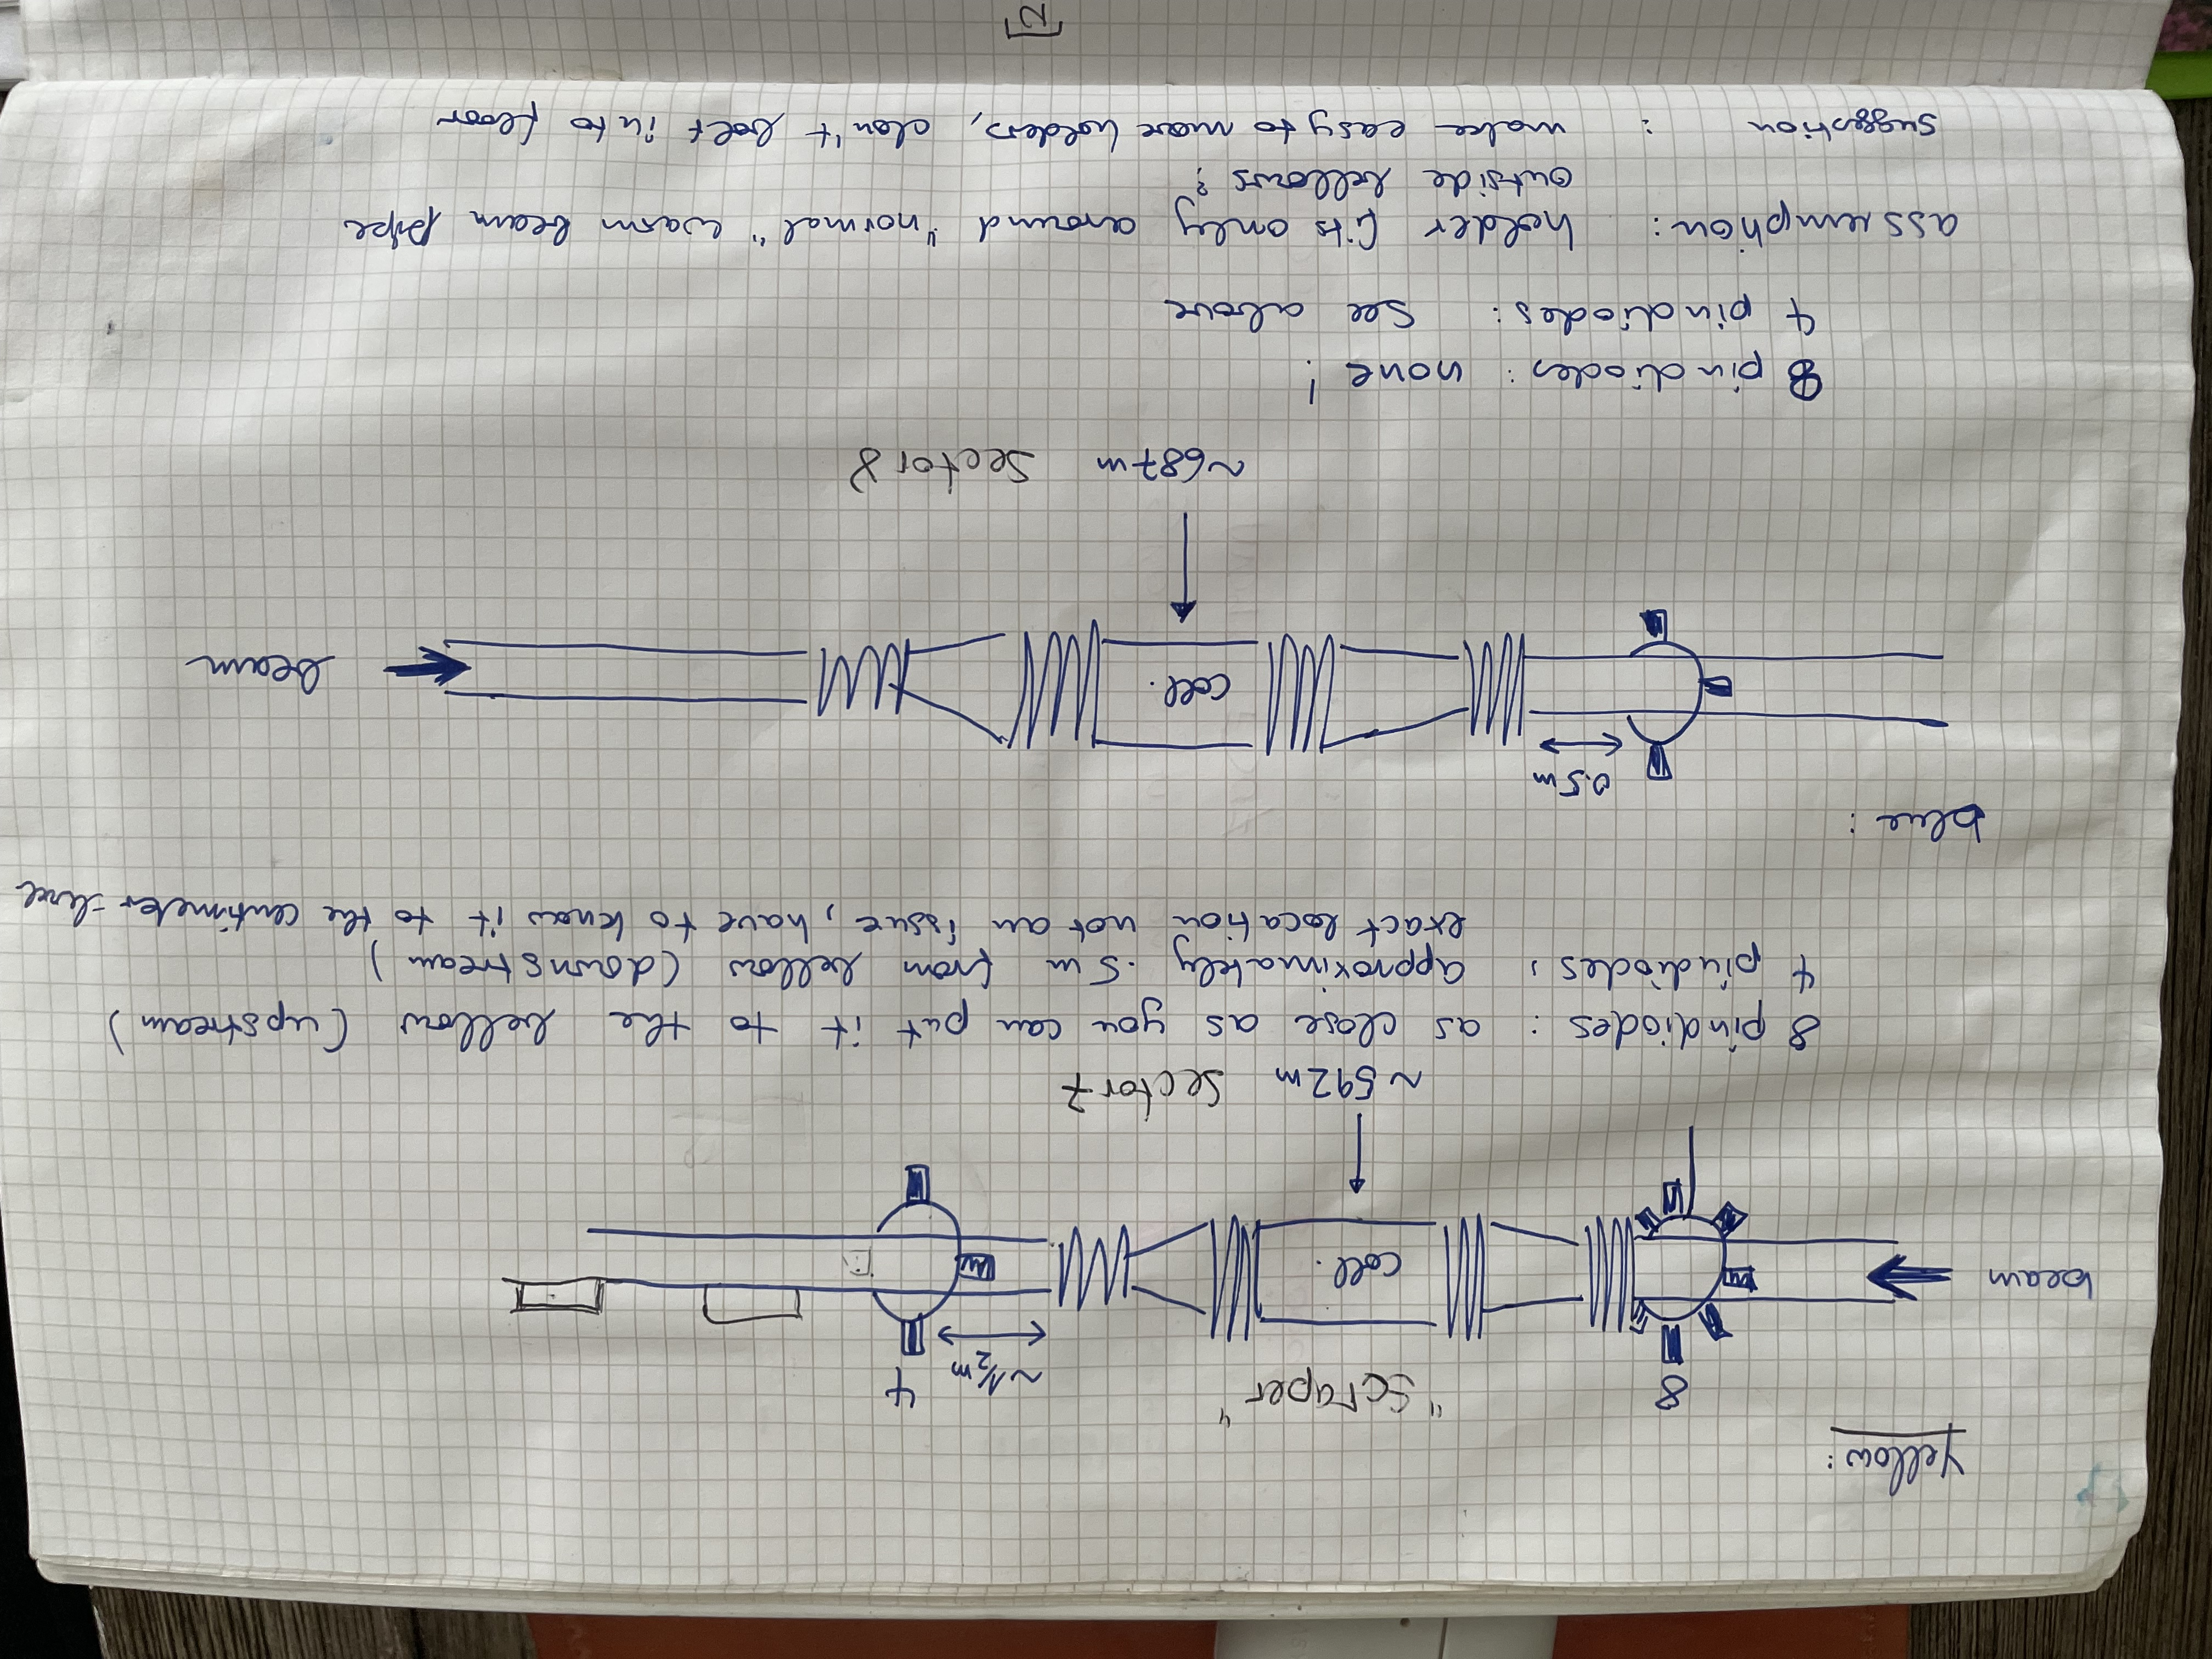 Yellow:
"Scraper"
8
~1/2 m
4
beam
Coll.
~592m Sector 7
8 pindiodes: as close as you can put it to the bellow (upstream)
4 pindiodes: approximately .5m from bellow (downstream)
exact location not an issue, have to know it to the centimeter-level
blue:
0.5m
Coll.
beam
~687m Sector 8
8 pindiodes: none!
4 pindiodes: see above
assumption: holder fits only around "normal" warm beam pipe
outside bellows?
suggestion: make easy to move holders, don't bolt into floor